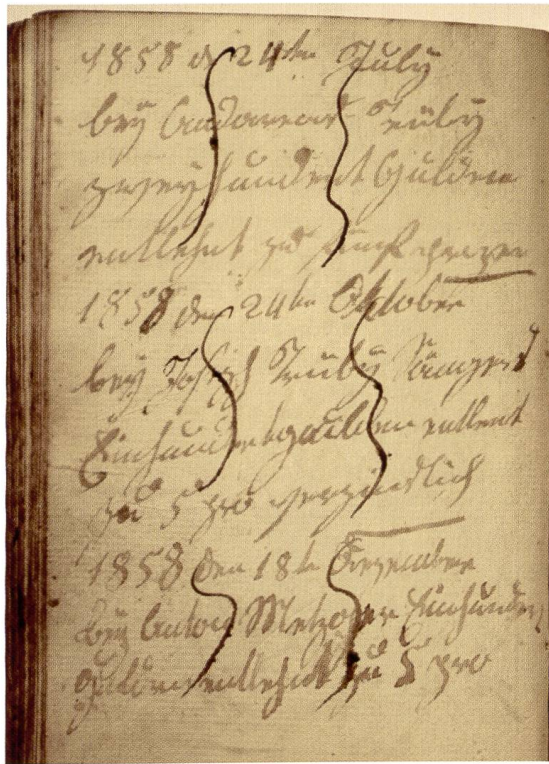 1858 den 24ten July
bey Andareas Truby
zweyhundert Gulden
entlehnt zu fünf
1858 den 24ten Oktober
bey Joseph Truby
Einhundertgulden entlent
zu 5 pro verzindlich
1858 den 18ten Dezember
bey Anton Metzger Einhundert
gulden entlehnt zu 5 pro